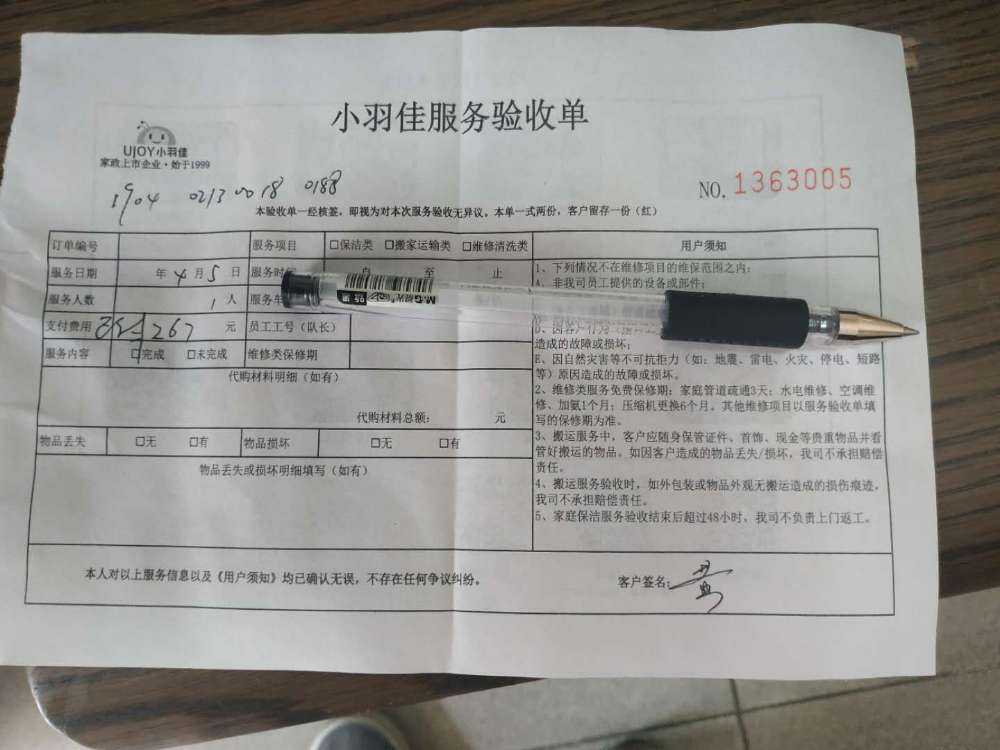 小羽佳服务验收单
UJOY小羽佳
家政上市企业·始于1999
1904 0213 0018 0188
NO. 1363005
本验收单一经核签，即视为对本次服务验收无异议。本单一式两份，客户留存一份（红）
订单编号 服务项目 □保洁类 □搬家运输类 □维修清洗类
服务日期 年 4 月 5 日 服务时 自 至 止
服务人数 1 人 服务车
支付费用 267 元 员工工号（队长）
服务内容 □完成 □未完成 维修类保修期
代购材料明细（如有）
代购材料总额： 元
物品丢失 □无 □有 物品损坏 □无 □有
物品丢失或损坏明细填写（如有）
用户须知
1、下列情况不在维修项目的维保范围之内：
A、非我司员工提供的设备或部件；
造成的故障或损坏；
E、因自然灾害等不可抗拒力（如：地震、雷电、火灾、停电、短路
等）原因造成的故障或损坏。
2、维修类服务免费保修期：家庭管道疏通3天；水电维修、空调维
修、加氨1个月；压缩机更换6个月。其他维修项目以服务验收单填
写的保修期为准。
3、搬运服务中，客户应随身保管证件、首饰、现金等贵重物品并看
管好搬运的物品。如因客户造成的物品丢失/损坏，我司不承担赔偿
责任。
4、搬运服务验收时，如外包装或物品外观无搬运造成的损伤痕迹，
我司不承担赔偿责任。
5、家庭保洁服务验收结束后超过48小时，我司不负责上门返工。
本人对以上服务信息以及《用户须知》均已确认无误，不存在任何争议纠纷。
客户签名：
M&G